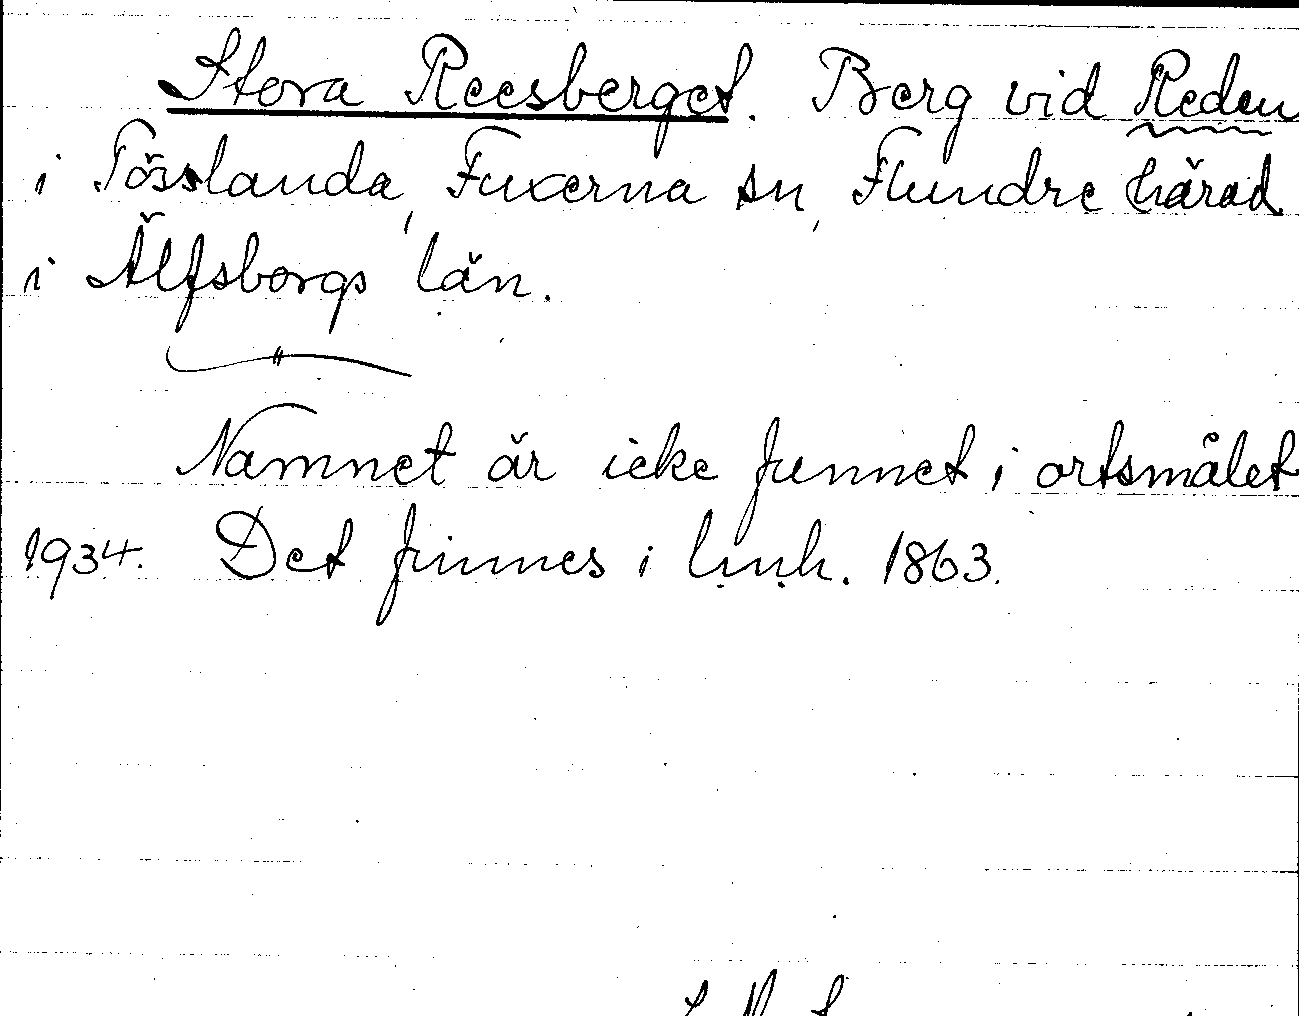 Stora Reesberget. Berg vid Reden
i Tösslanda, Fuxerna sn, Flundre härad
i Älfsborgs län.
Namnet är icke funnet i ortsmålet
1934. Det finnes i lmh. 1863.